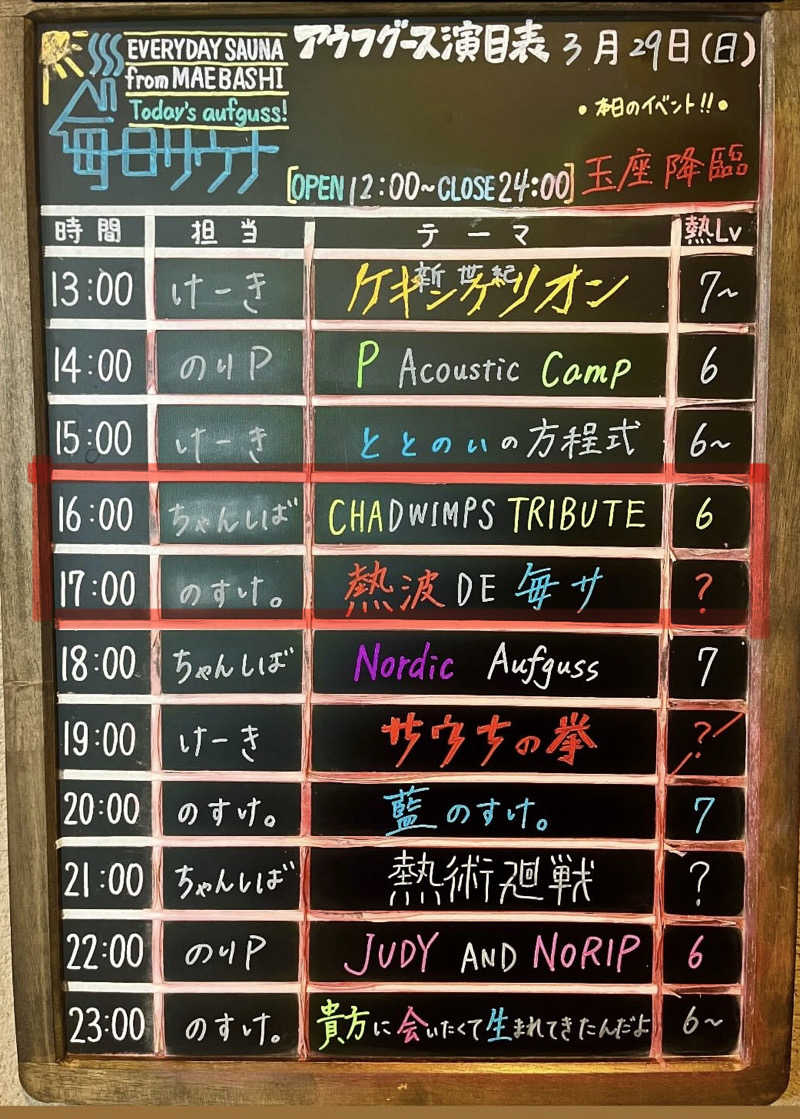 EVERYDAY SAUNA
from MAEBASHI
Today's aufguss!
毎日サウナ
アウフグース演目表 3月29日(日)
•本日のイベント!!•
[OPEN 12:00~CLOSE 24:00] 玉座降臨
時間 担当 テーマ 熱Lv
13:00 けーき 新世紀 ケキンゲリオン 7~
14:00 のりP P Acoustic Camp 6
15:00 けーき ととのいの方程式 6~
16:00 ちゃんしば CHADWIMPS TRIBUTE 6
17:00 のすけ。 熱波DE毎サ ?
18:00 ちゃんしば Nordic Aufguss 7
19:00 けーき サウナの拳 ?
20:00 のすけ。 藍のすけ。 7
21:00 ちゃんしば 熱術廻戦 ?
22:00 のりP JUDY AND NORIP 6
23:00 のすけ。 貴方に会いたくて生まれてきたんだよ 6~